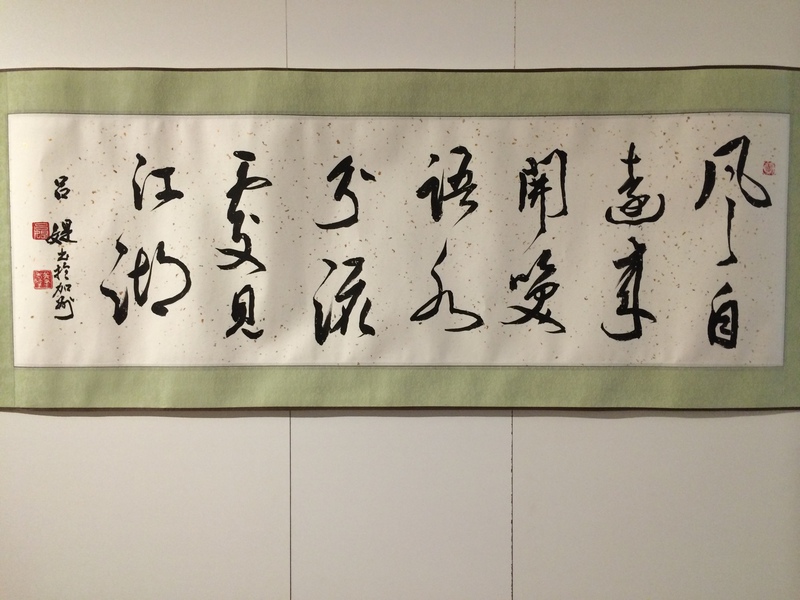 風自
遠來
聞笑
語水
分流
處見
江湖
吕媞書於加州